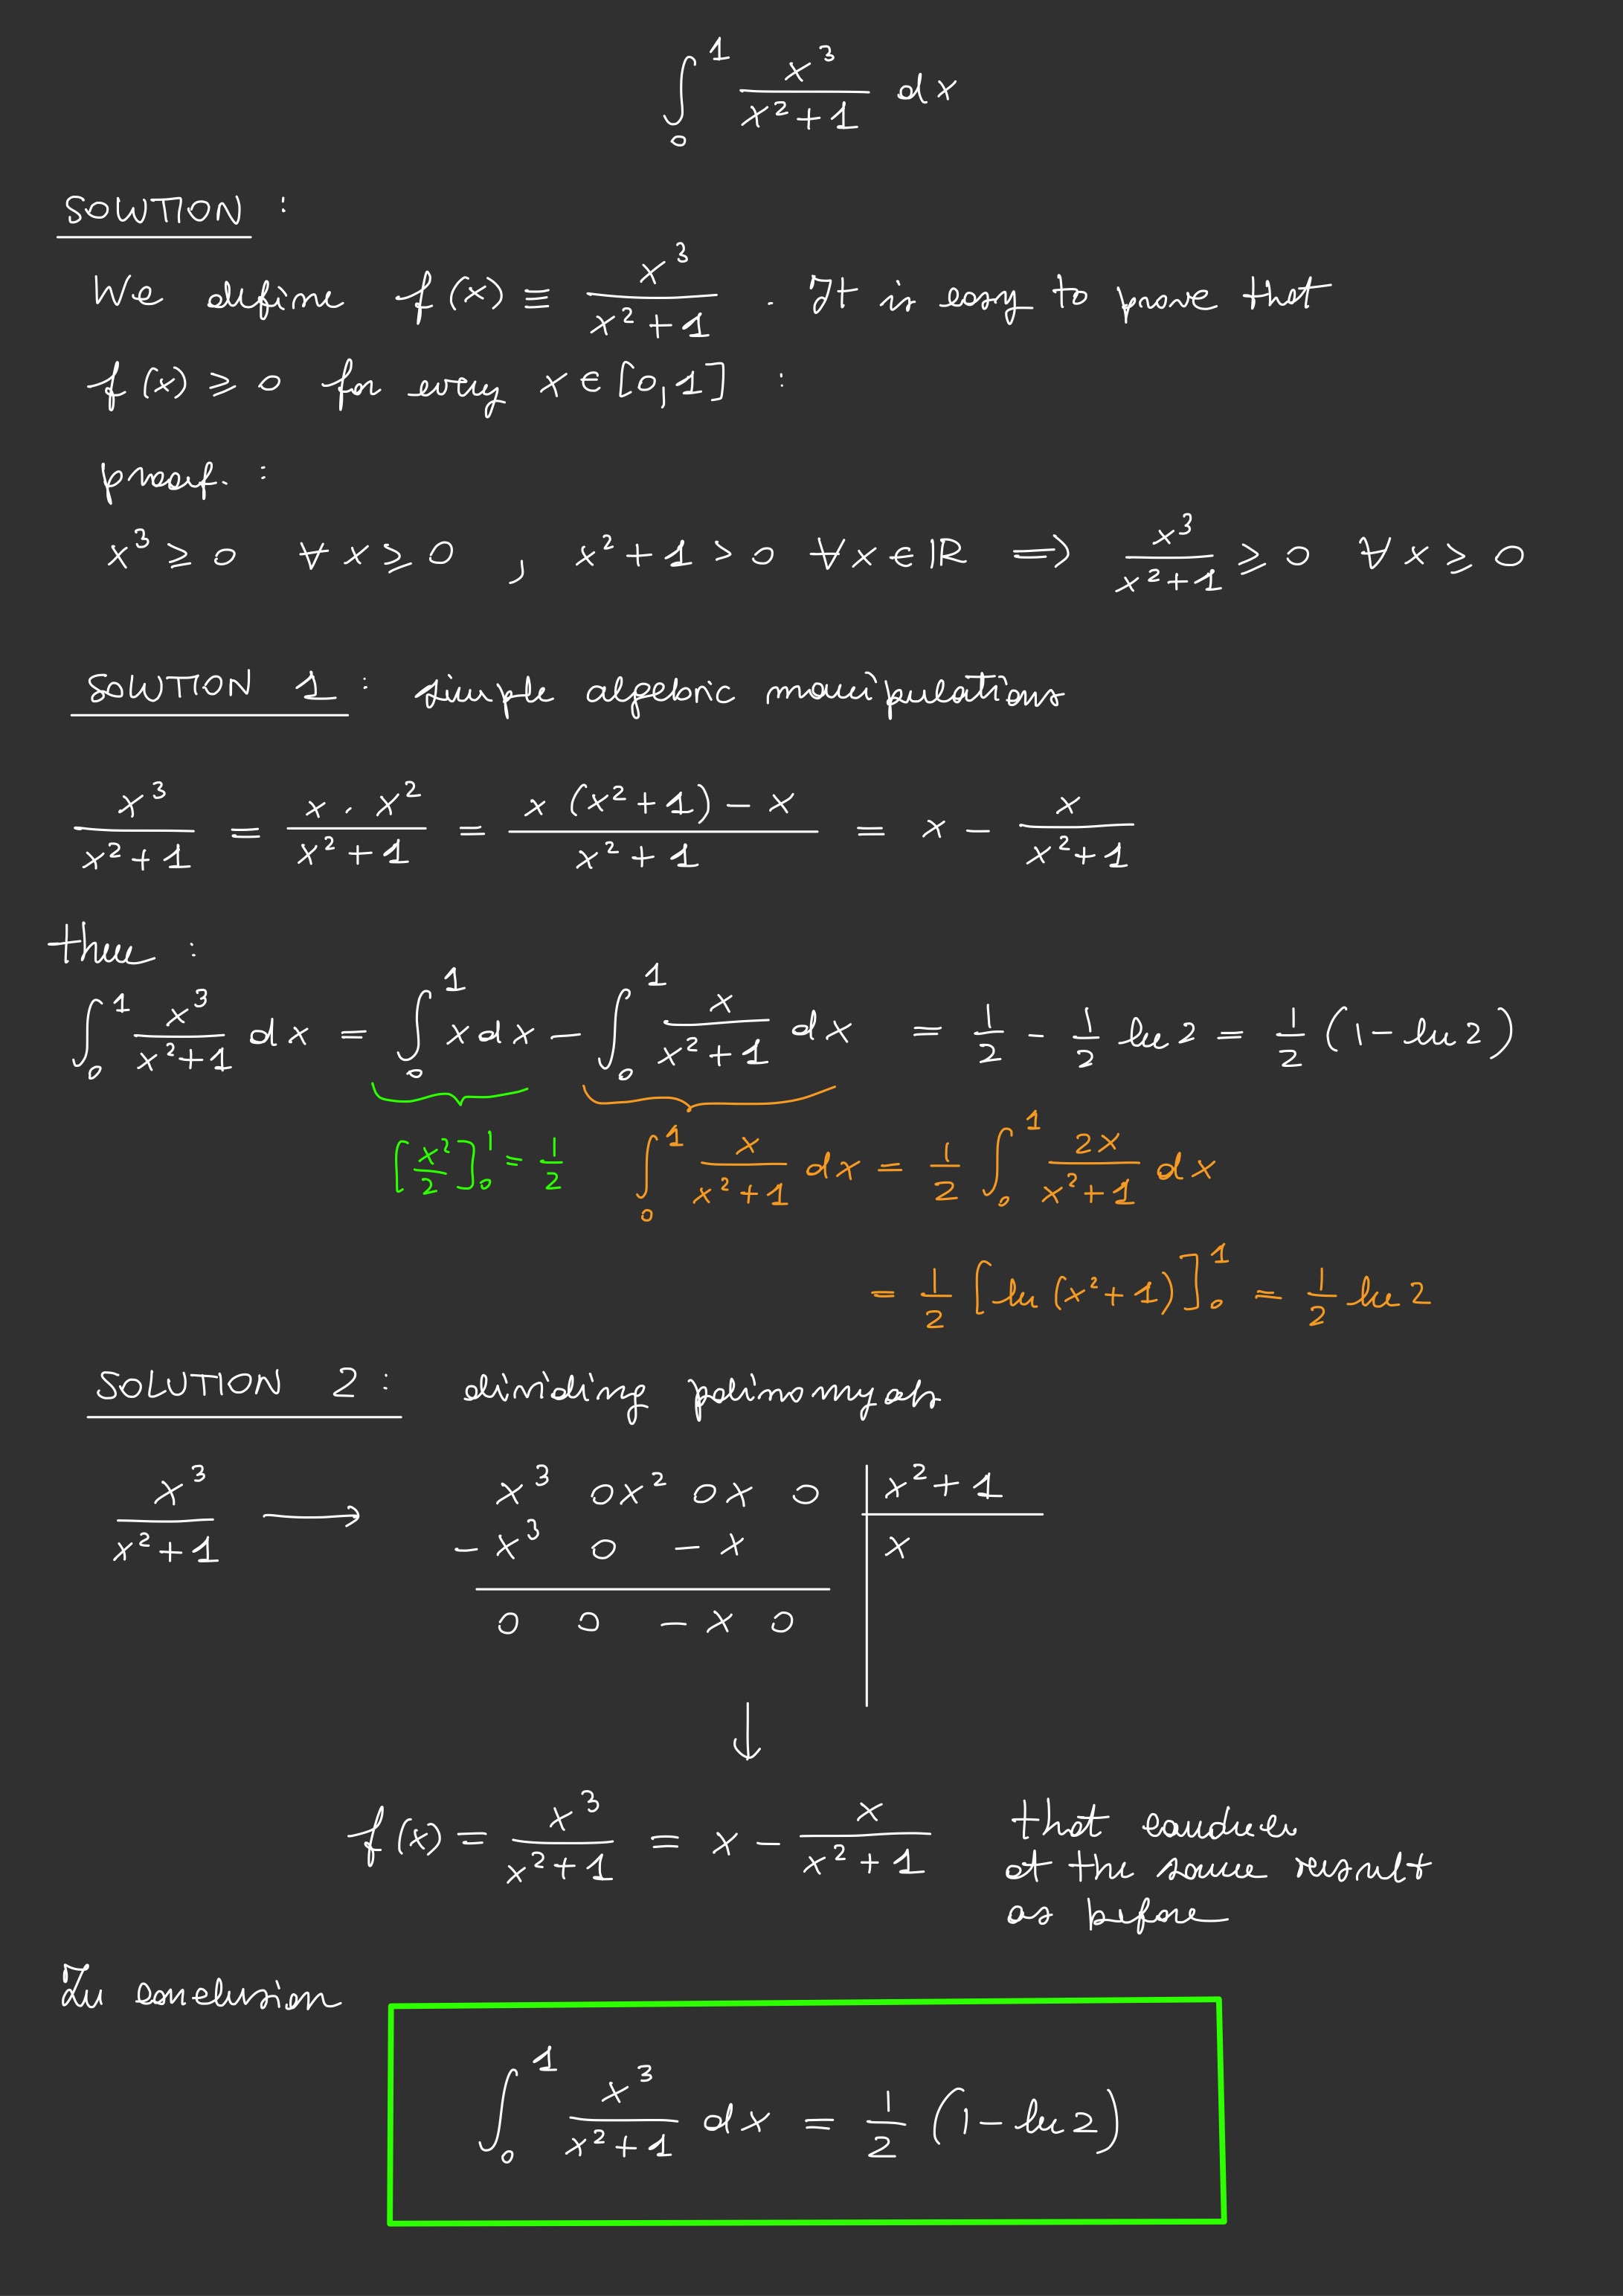 ∫₀¹ x³/(x²+1) dx
SOLUTION :
We define f(x) ≡ x³/(x²+1) . It is easy to prove that
f(x) ≥ 0 for every x ∈ [0,1] :
proof. :
x³ ≥ 0 ∀ x ≥ 0 , x²+1 > 0 ∀x∈ℝ ⟹ x³/(x²+1) ≥ 0 ∀ x ≥ 0
SOLUTION 1 : simple algebric manipulations
x³/(x²+1) = x · x²/(x²+1) = (x (x²+1) − x)/(x²+1) = x − x/(x²+1)
then :
∫₀¹ x³/(x²+1) dx = ∫₀¹ x dx − ∫₀¹ x/(x²+1) dx = 1/2 − 1/2 ln 2 = 1/2 (1 − ln 2)
[x²/2]₀¹ = 1/2 ∫₀¹ x/(x²+1) dx = 1/2 ∫₀¹ 2x/(x²+1) dx
= 1/2 [ln (x²+1)]₀¹ = 1/2 ln 2
SOLUTION 2 : dividing polinomyas
x³/(x²+1) ⟶ x³ 0x² 0x 0 | x²+1
− x³ 0 − x | x
0 0 − x 0
↓
f(x) = x³/(x²+1) = x − x/(x²+1) that conduces
at the same result
as before
In conclusion
∫₀¹ x³/(x²+1) dx = 1/2 (1 − ln 2)